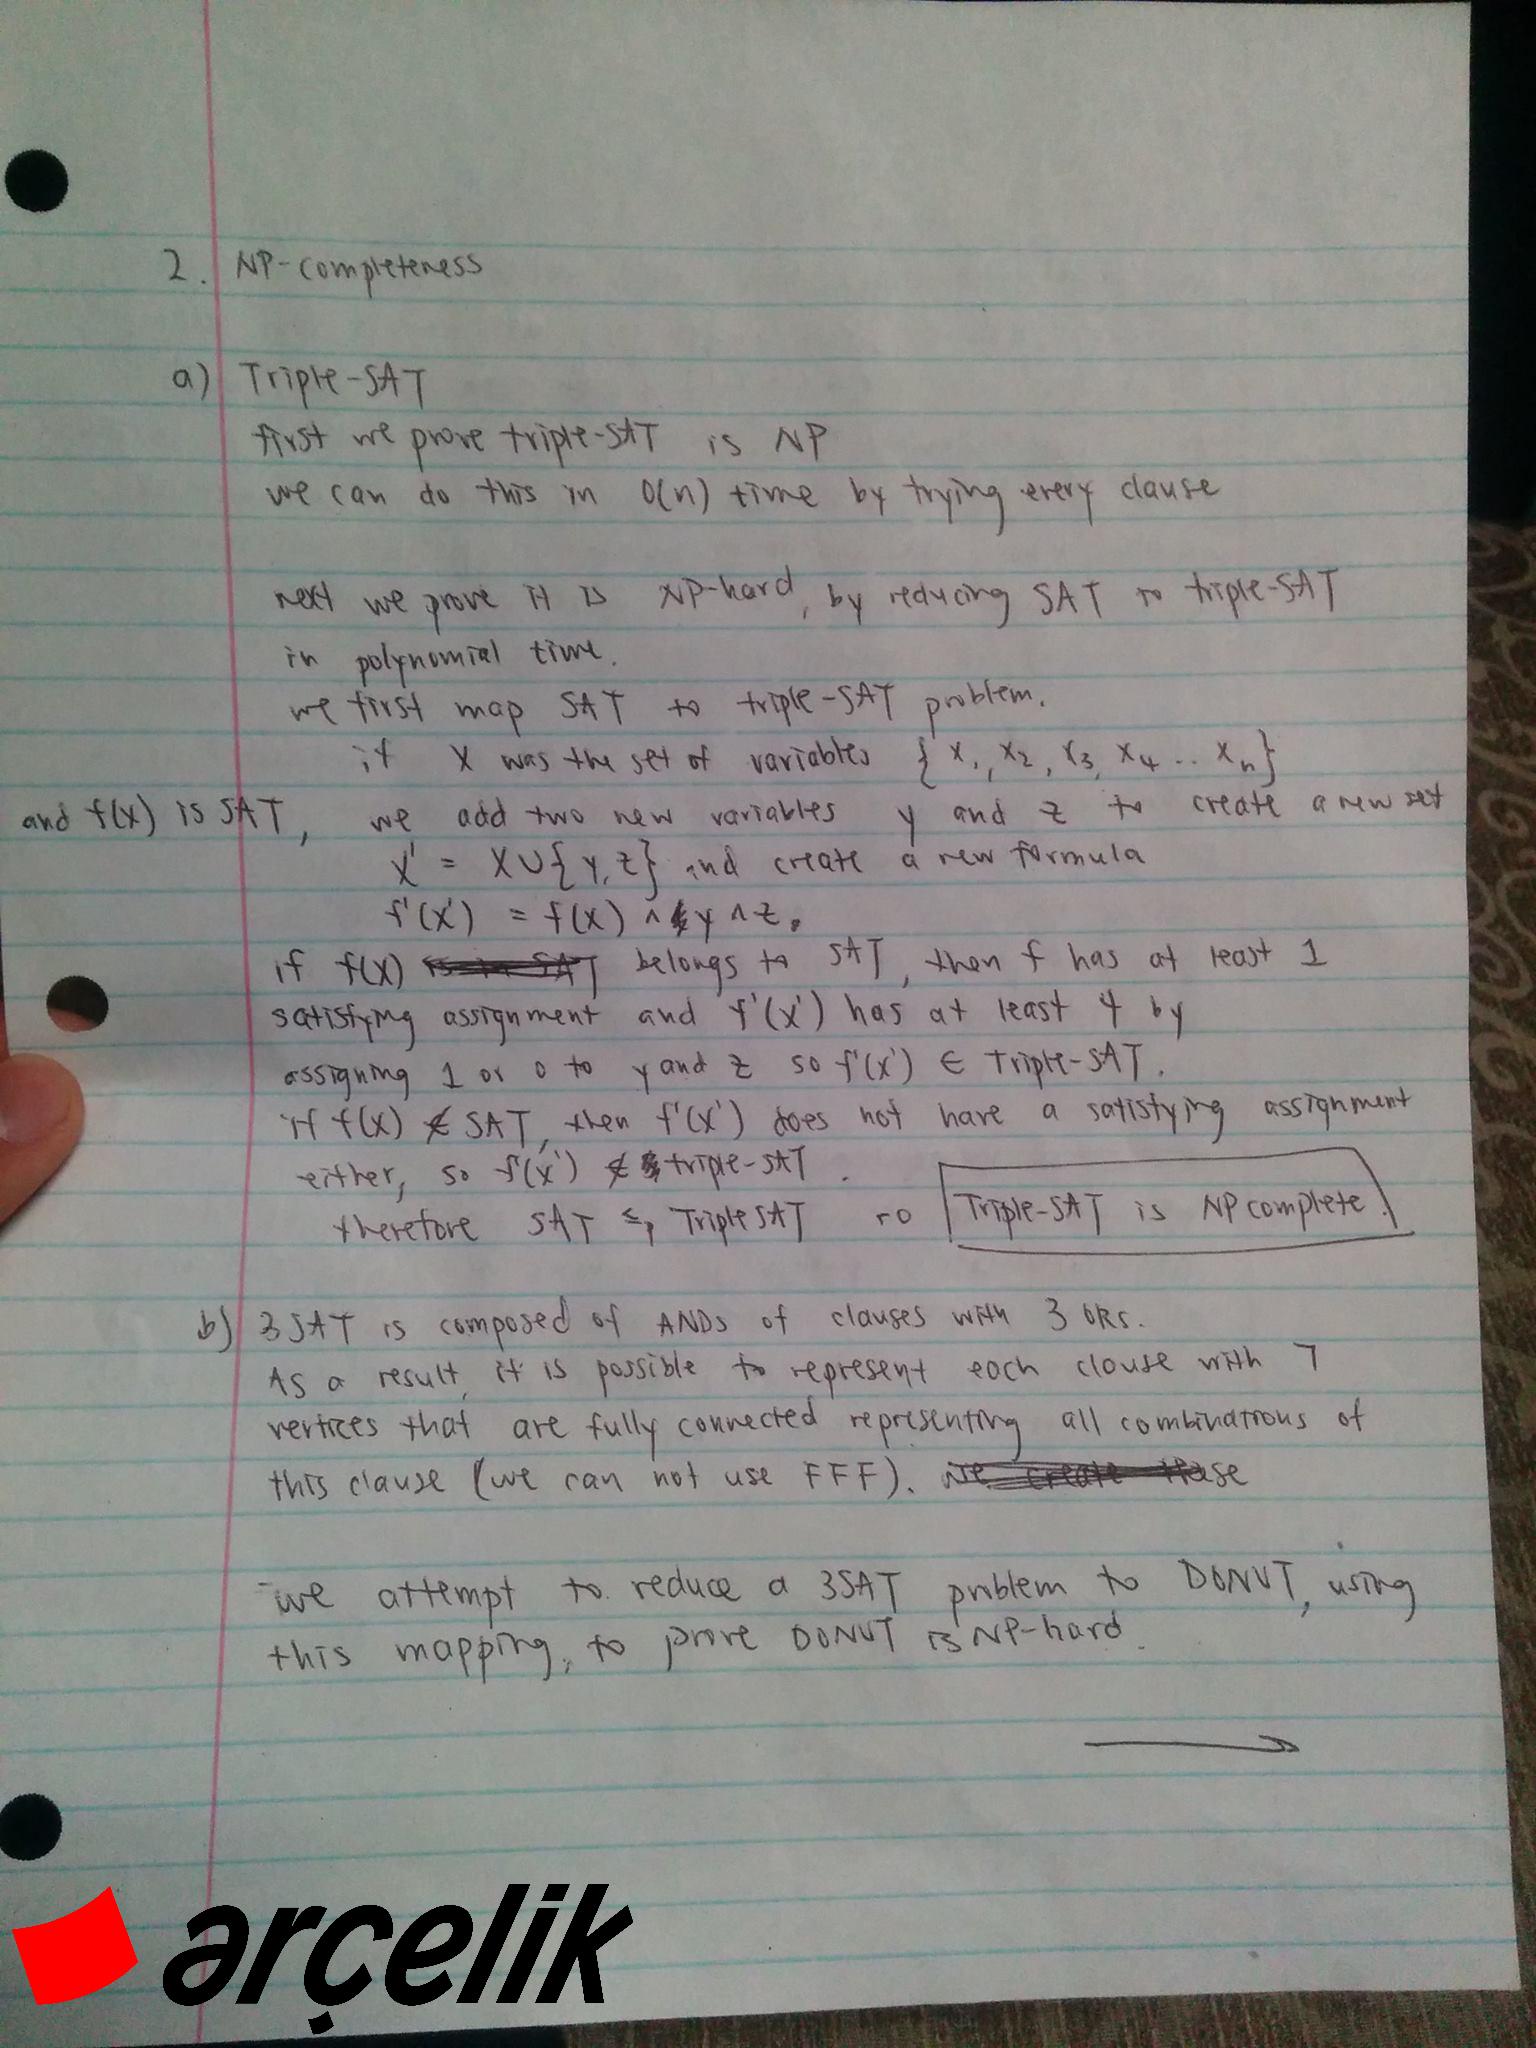 2. NP-completeness
a) Triple-SAT
first we prove triple-SAT is NP
we can do this in O(n) time by trying every clause
next we prove it is NP-hard, by reducing SAT to triple-SAT
in polynomial time.
we first map SAT to triple-SAT problem.
if X was the set of variables { x₁, x₂, x₃, x₄ .. xₙ}
and f(x) is SAT, we add two new variables y and z to create a new set
X' = X∪{y,z} and create a new formula
f'(x') = f(x) ∧ y ∧ z.
if f(x) belongs to SAT, then f has at least 1
satisfying assignment and f'(x') has at least 4 by
assigning 1 or 0 to y and z so f'(x') ∈ Triple-SAT.
if f(x) ∉ SAT, then f'(x') does not have a satisfying assignment
either, so f'(x') ∉ triple-SAT.
therefore SAT ≤p TripleSAT so Triple-SAT is NP complete.
b) 3SAT is composed of ANDs of clauses with 3 ORs.
As a result, it is possible to represent each clause with 7
vertices that are fully connected representing all combinations of
this clause (we can not use FFF).
we attempt to reduce a 3SAT problem to DONUT, using
this mapping, to prove DONUT is NP-hard.
arçelik